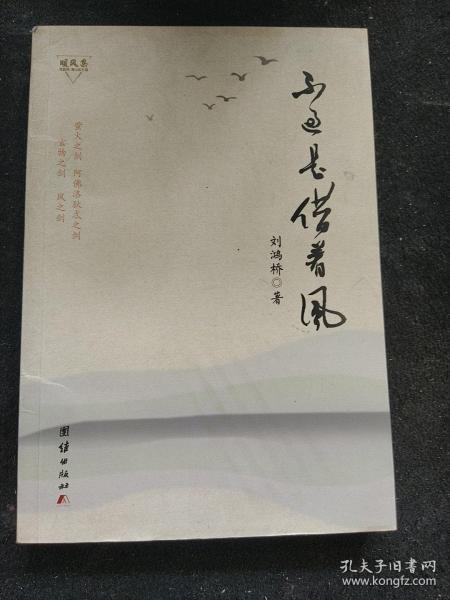 暖风集
不过是借着风
刘鸿桥◎著
萤火之剑 阿佛洛狄忒之剑
玄物之剑 风之剑
团结出版社
孔夫子旧书网
www.kongfz.com